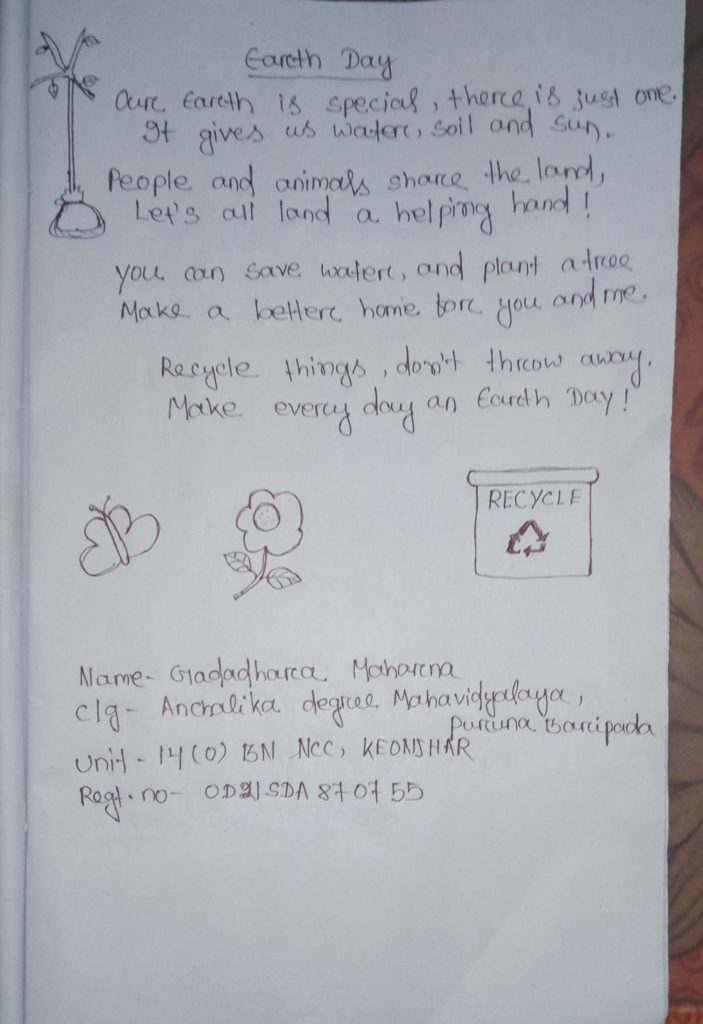 Earcth Day
Ourc Earcth is special, therce is just one.
It gives us waterc, soil and sun.
People and animals sharce the land,
Let's all land a helping hand!
you can save waterc, and plant a trcee
Make a betterc home forc you and me.
Recycle things, don't thrcow away.
Make evercy day an Earcth Day!
RECYCLE
Name- Gadadharca Maharcna
clg- Anchalika degrcee Mahavidyalaya,
Purcuna Barcipada
Unit - 14 (O) BN NCC, KEONJHAR
Regt. no- OD21SDA870755